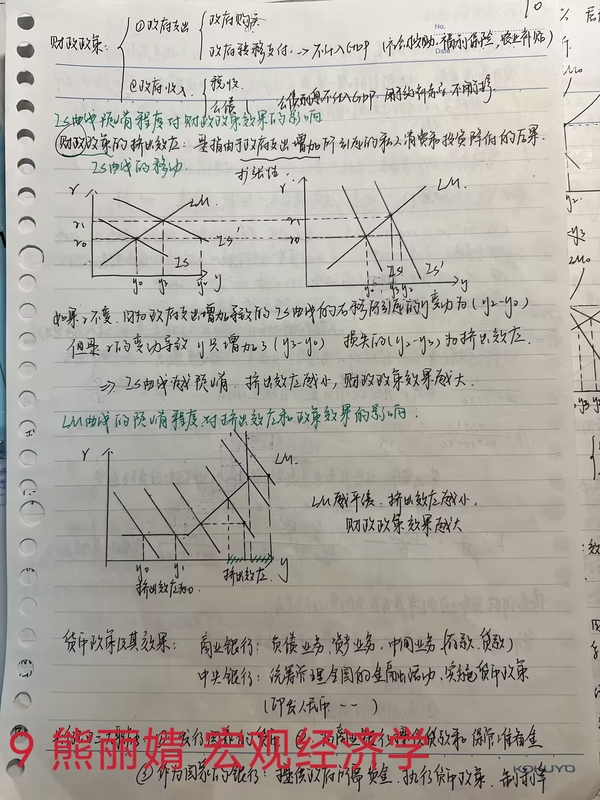 10
No.
Date
财政政策：
①政府支出
政府购买
政府转移支付 → 不计入GDP（公共救助，福利保险，农业补贴）
②政府收入
税收
公债
IS曲线陡峭程度对财政政策效果的影响
财政政策的挤出效应：是指由于政府支出增加所引起的私人消费和投资降低的后果.
IS曲线的移动
扩张性.
r LM. r LM.
r1 r1
r0 r0
IS' IS IS IS'
y0 y3 y2 y y0 y3 y2 y
如果r不变，因为政府支出增加导致的IS曲线的右移所引起的y变动为(y2-y0)
但是r的变动导致y只增加了(y3-y0) 损失的(y2-y3)为挤出效应.
⇒ IS曲线越陡峭，挤出效应越小，财政政策效果越大.
LM曲线的陡峭程度对挤出效应和政策效果的影响.
r LM.
LM越平缓，挤出效应越小，
财政政策效果越大
y0 y1 y
挤出效应为0. 挤出效应.
货币政策及其效果： 商业银行：负债业务、资产业务、中间业务（存款、贷款）
中央银行：统筹管理全国的金融活动，实施货币政策
（印发人民币 --）
9 熊丽婧 宏观经济学
KOKUYO
③作为国家的银行：提供政府所需资金，执行货币政策，